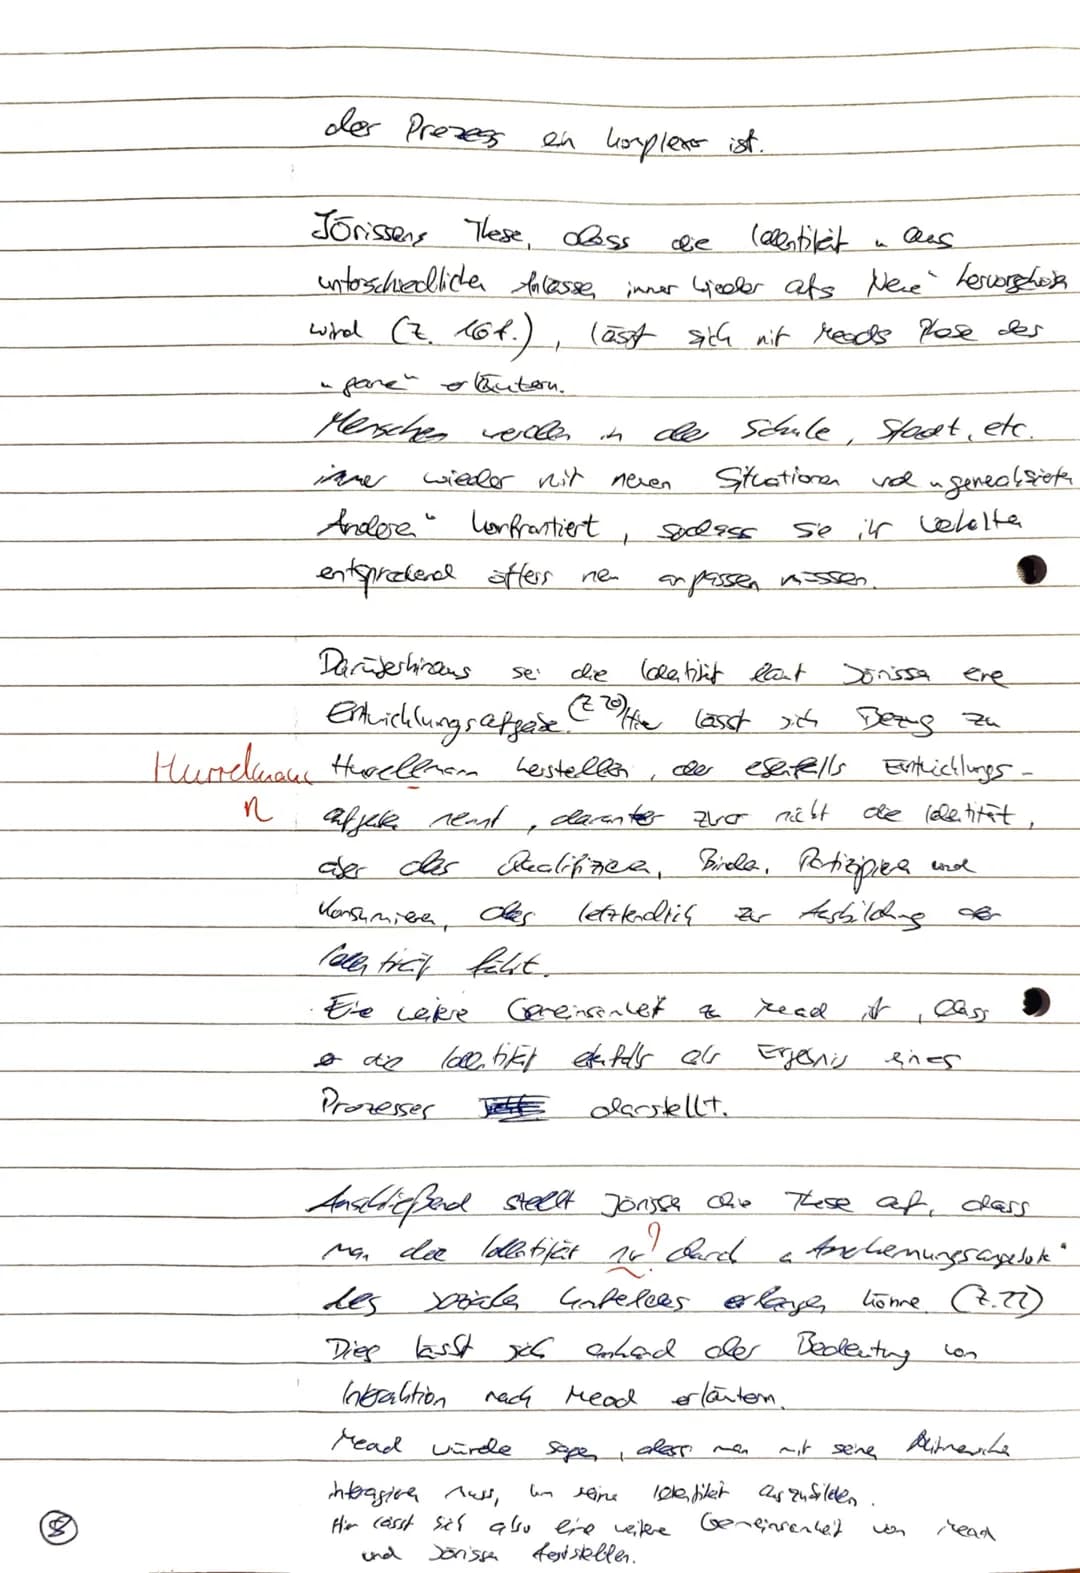 der Prozess ein komplexer ist.
Jörissens These, dass die Identität „ aus
unterschiedlichen Anlässen immer wieder als Neue“ hervorgehoben
wird (Z. 16f.), lässt sich mit Meads Phase des
„game“ erläutern.
Menschen werden in der Schule, Stadt, etc.
immer wieder mit neuen Situationen und „generalisierten
Anderen“ konfrontiert, sodass sie ihr Verhalten
entsprechend öfters neu anpassen müssen.
Darüberhinaus sei die Identität laut Jörissen eine
Entwicklungsaufgabe. (Z 20) Hier lässt sich Bezug zu
Hurrelmann Hurellmann herstellen, der ebenfalls Entwicklungs-
n aufgaben nennt, darunter zwar nicht die Identität,
aber das Qualifizieren, Binden, Partizipieren und
Konsumieren, das letztendlich zur Ausbildung der
Identität führt.
Eine weitere Gemeinsamkeit zu Mead ist, dass
er die Identität ebenfalls als Ergebnis eines
Prozesses darstellt.
Anschließend stellt Jörissen die These auf, dass
man die Identität nur ? durch „Anerkennungsangebote“
des sozialen Umfeldes erlangen könne. (Z.22)
Dies lässt sich anhand der Bedeutung von
Interaktion nach Mead erläutern.
Mead würde sagen, dass man mit seinen Mitmenschen
interagieren muss, um seine Identität auszubilden.
Hier lässt sich also eine weitere Gemeinsamkeit von Mead
und Jörissen feststellen.
8